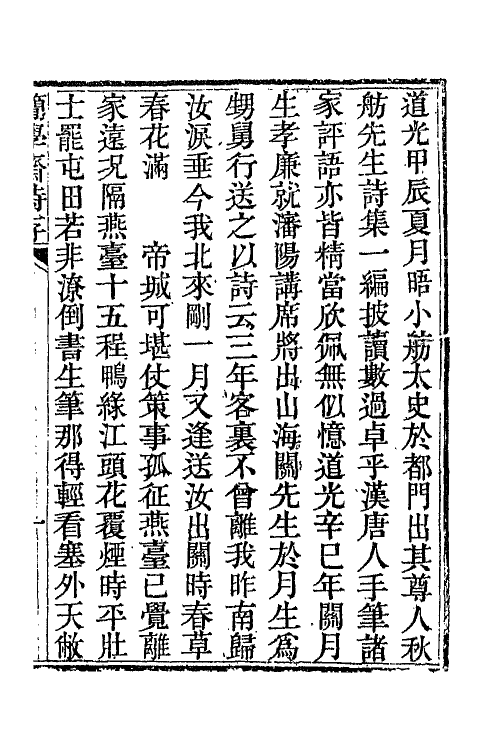 道光甲辰夏月晤小舫太史於都門出其尊人秋
舫先生詩集一編披讀數過卓乎漢唐人手筆諸
家評語亦皆精當欣佩無似憶道光辛巳年關月
生孝廉就瀋陽講席將出山海關先生於月生爲
甥舅行送之以詩云三年客裏不曾離我昨南歸
汝淚垂今我北來剛一月又逢送汝出關時春草
春花滿　帝城可堪仗策事孤征燕臺已覺離
家遠况隔燕臺十五程鴨綠江頭花覆煙時平壯
士罷屯田若非潦倒書生筆那得輕看塞外天敝
簡學齋詩序